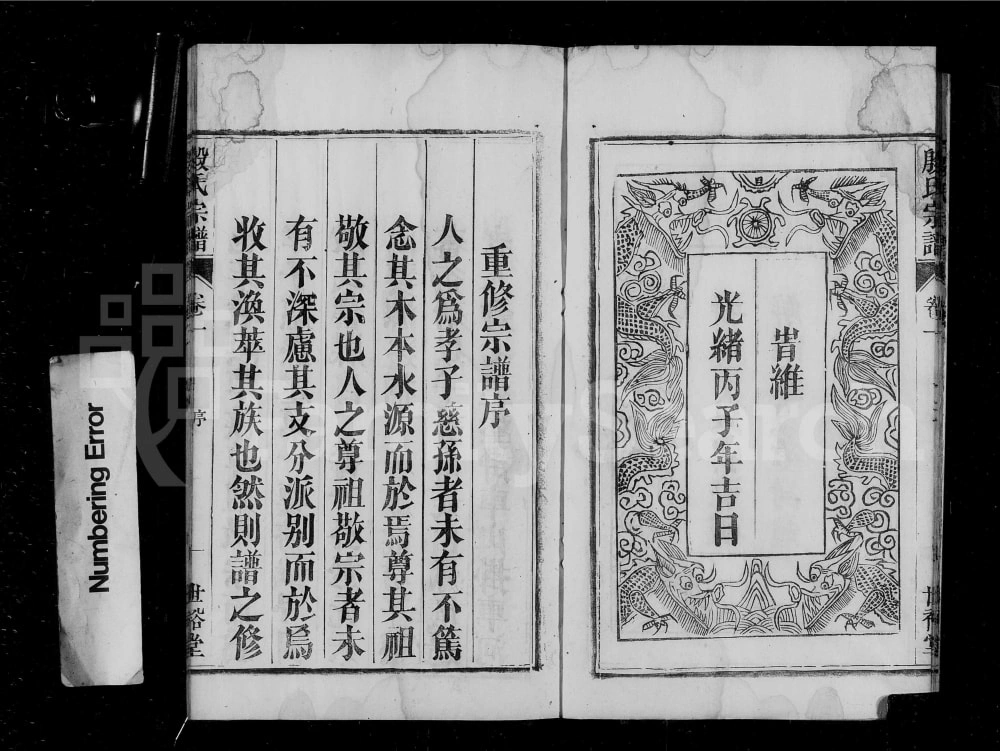 殷氏宗譜
卷一
世裕堂
旹維
光緒丙子年吉日
重修宗譜序
人之爲孝子慈孫者未有不篤
念其木本水源而於焉尊其祖
敬其宗也人之尊祖敬宗者未
有不深慮其支分派别而於焉
收其渙萃其族也然則譜之修
殷氏宗譜
卷一
序
一
世裕堂
Numbering Error